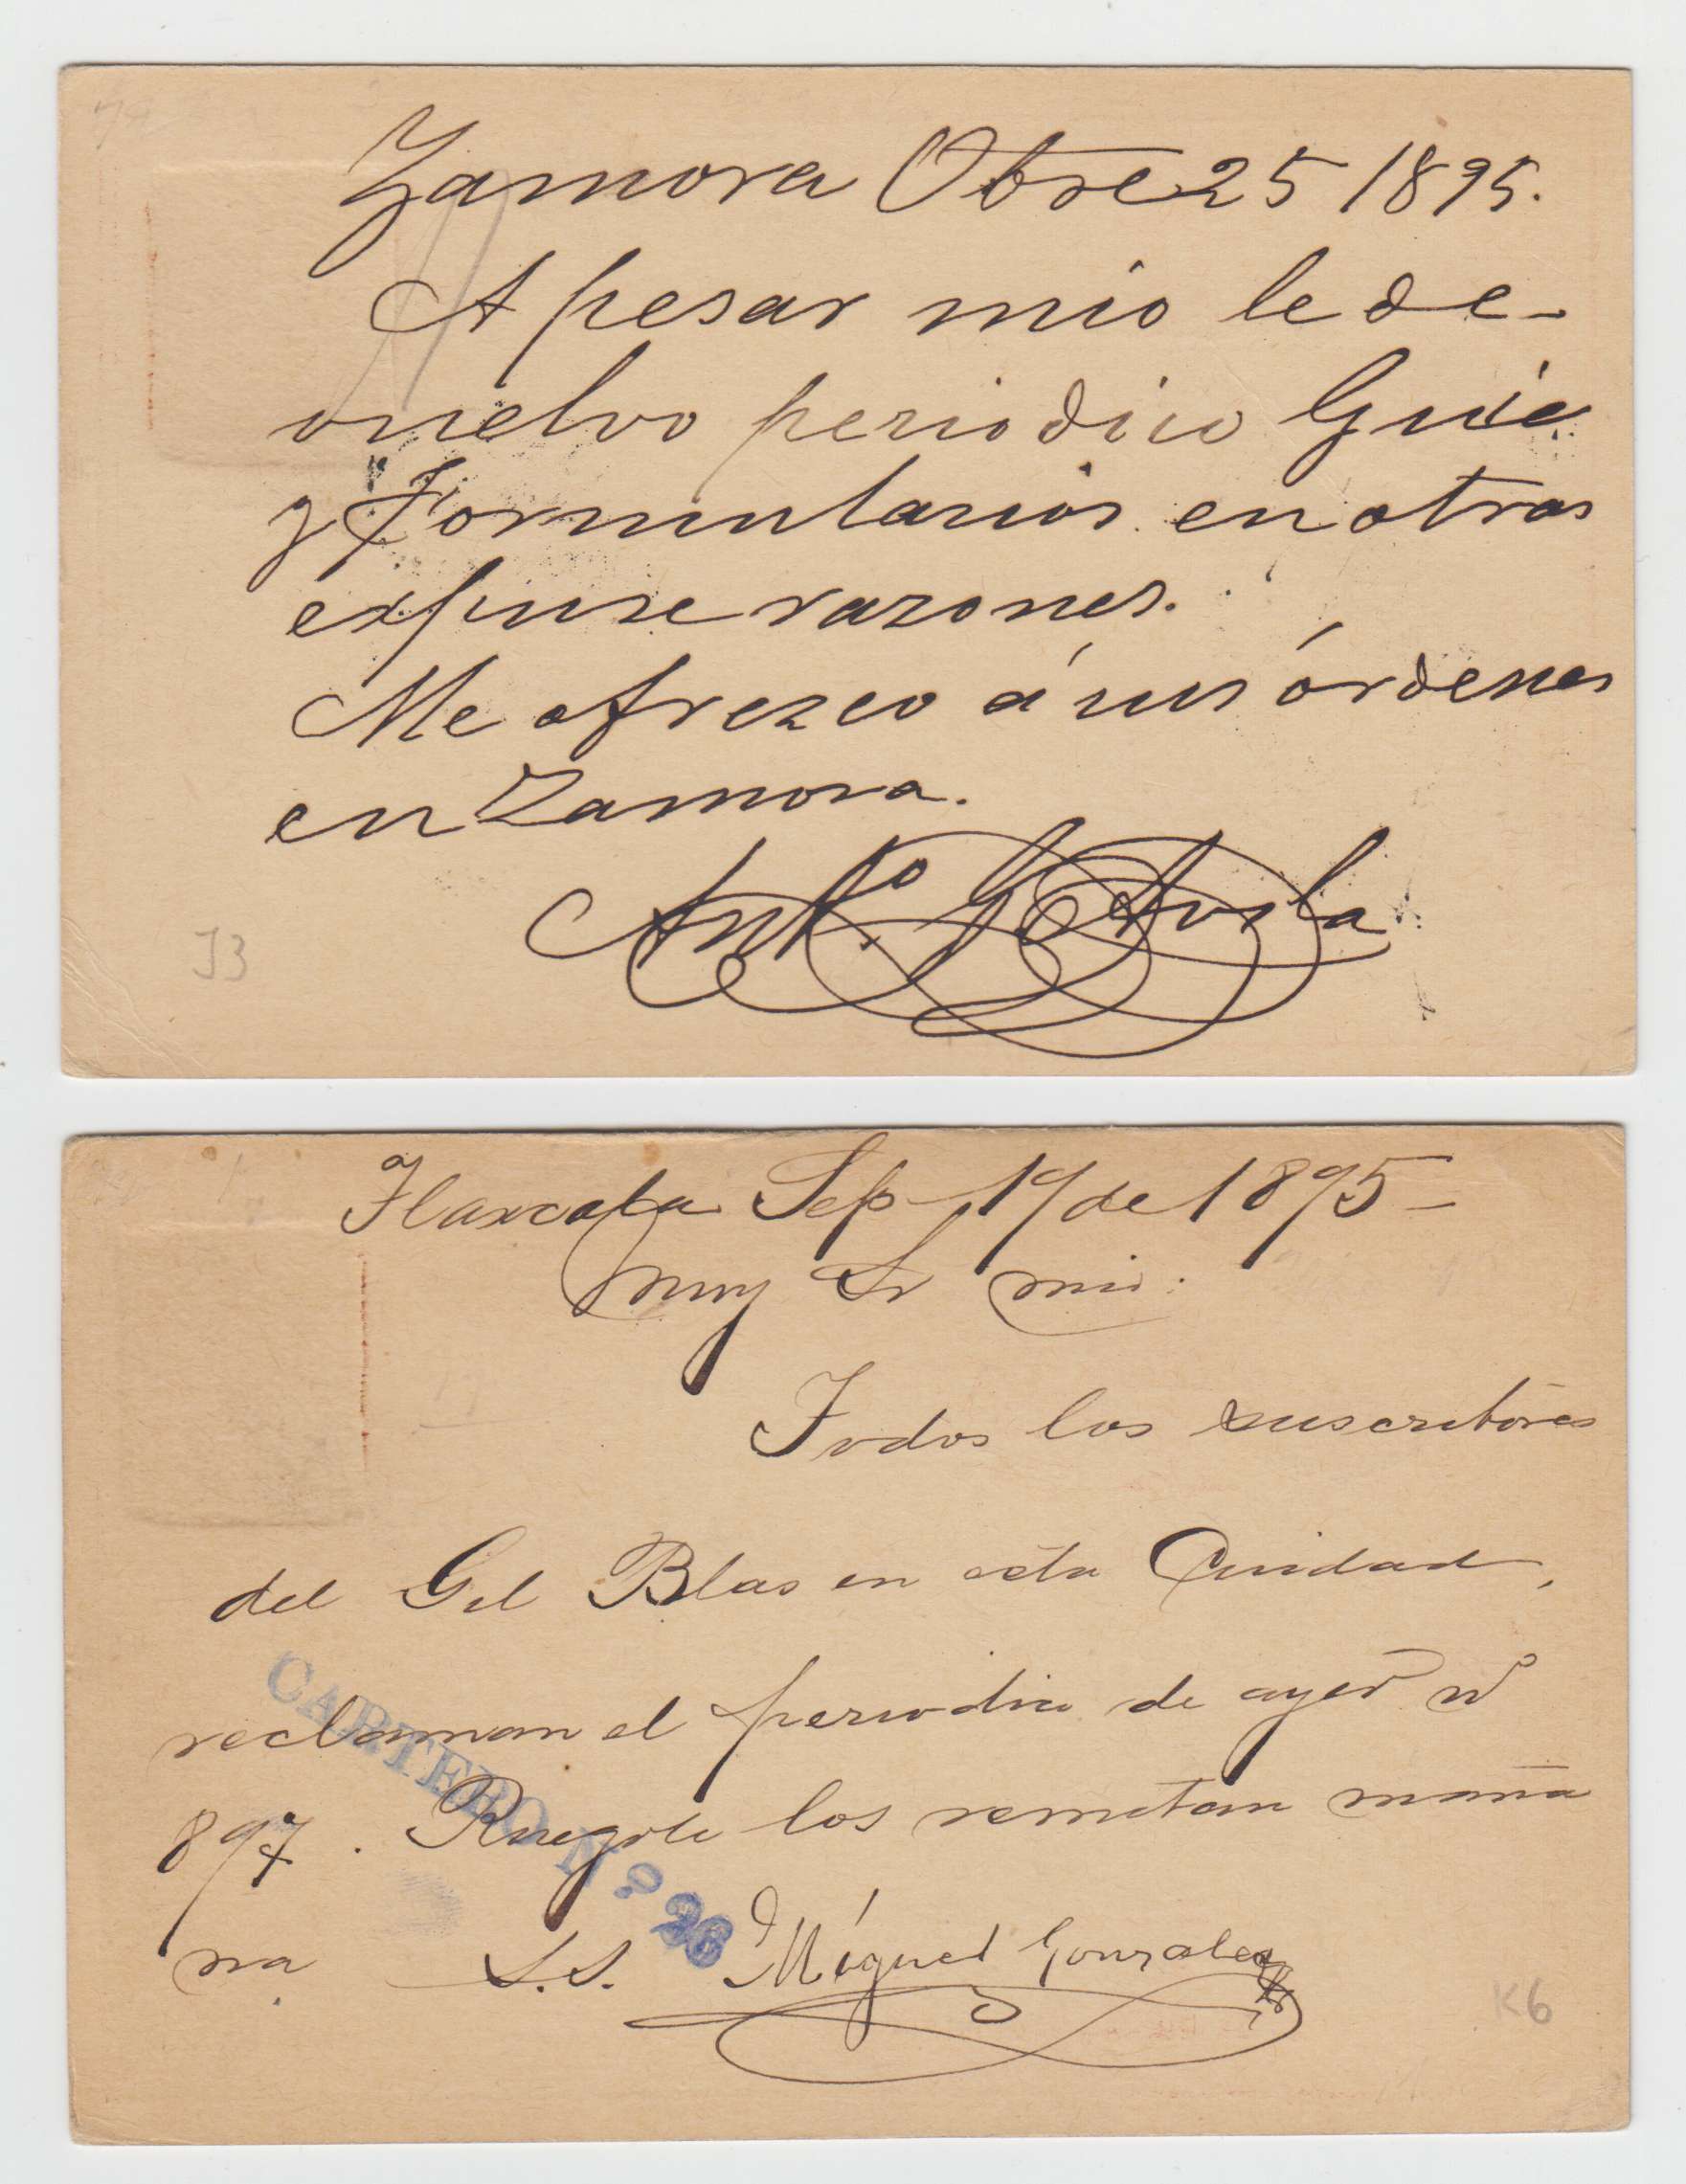 Zamora Obre 25 1895.
A pesar mio le de-
vuelvo periodico Guia
y Formularios en otras
expuse razones.
Me ofrezco á sus órdenes
en Zamora.
Anto. G Avila
J3
Tlaxcala Sep 19 de 1895-
Muy Sr mio:
Todos los suscritores
del Gil Blas en esta Ciudad,
reclaman el periodico de ayer no
897. Ruegole los remitan maña
na S.S. Miguel Gonzalez
CARTERO No 26
K6